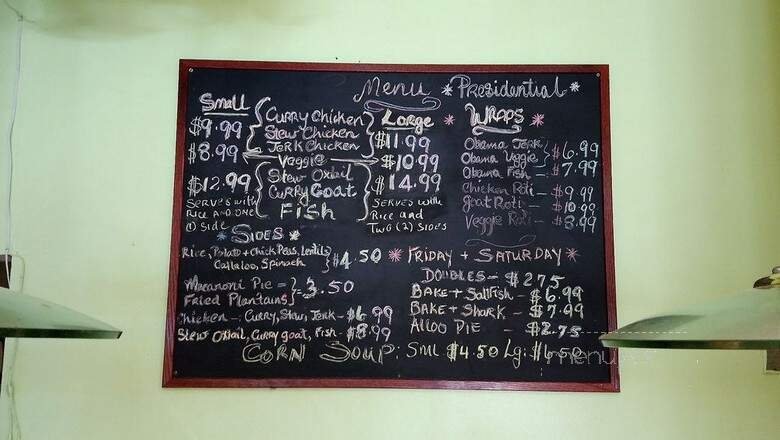 Menu * Presidential *
Small
Large
* WRAPS *
$9.99
Curry Chicken
Stew Chicken
Jerk Chicken
$11.99
$8.99
Veggie
$10.99
$12.99
Stew Oxtail
Curry Goat
Fish
$14.99
Serves with
Rice and one
(1) Side
Serves with
Rice and
Two (2) Sides
Obama Jerk
Obama Veggie
$6.99
Obama Fish - $7.99
Chicken Roti - $9.99
Goat Roti - $10.99
Veggie Roti - $8.99
* Sides *
Rice, Potato + Chick Peas, Lentils
Callaloo, Spinach
$4.50
Macaroni Pie =
Fried Plantains
3.50
Chicken - Curry, Stew, Jerk - $6.99
Stew Oxtail, Curry goat, Fish - $8.99
* Friday + Saturday *
Doubles - $2.75
Bake + Saltfish - $6.99
Bake + Shark - $7.99
Aloo Pie - $2.75
Corn Soup: Sml $4.50 Lg: $6.50
menu